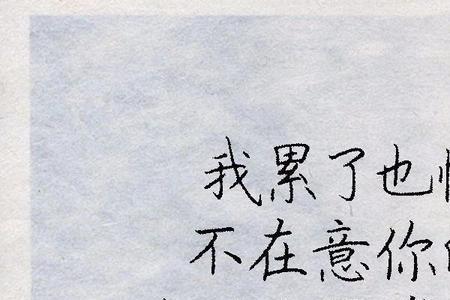 我累了也
不在意你